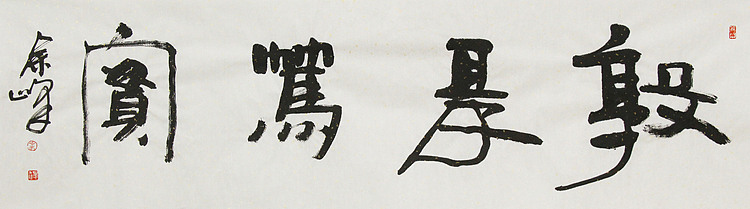 敦厚篤實
余峰